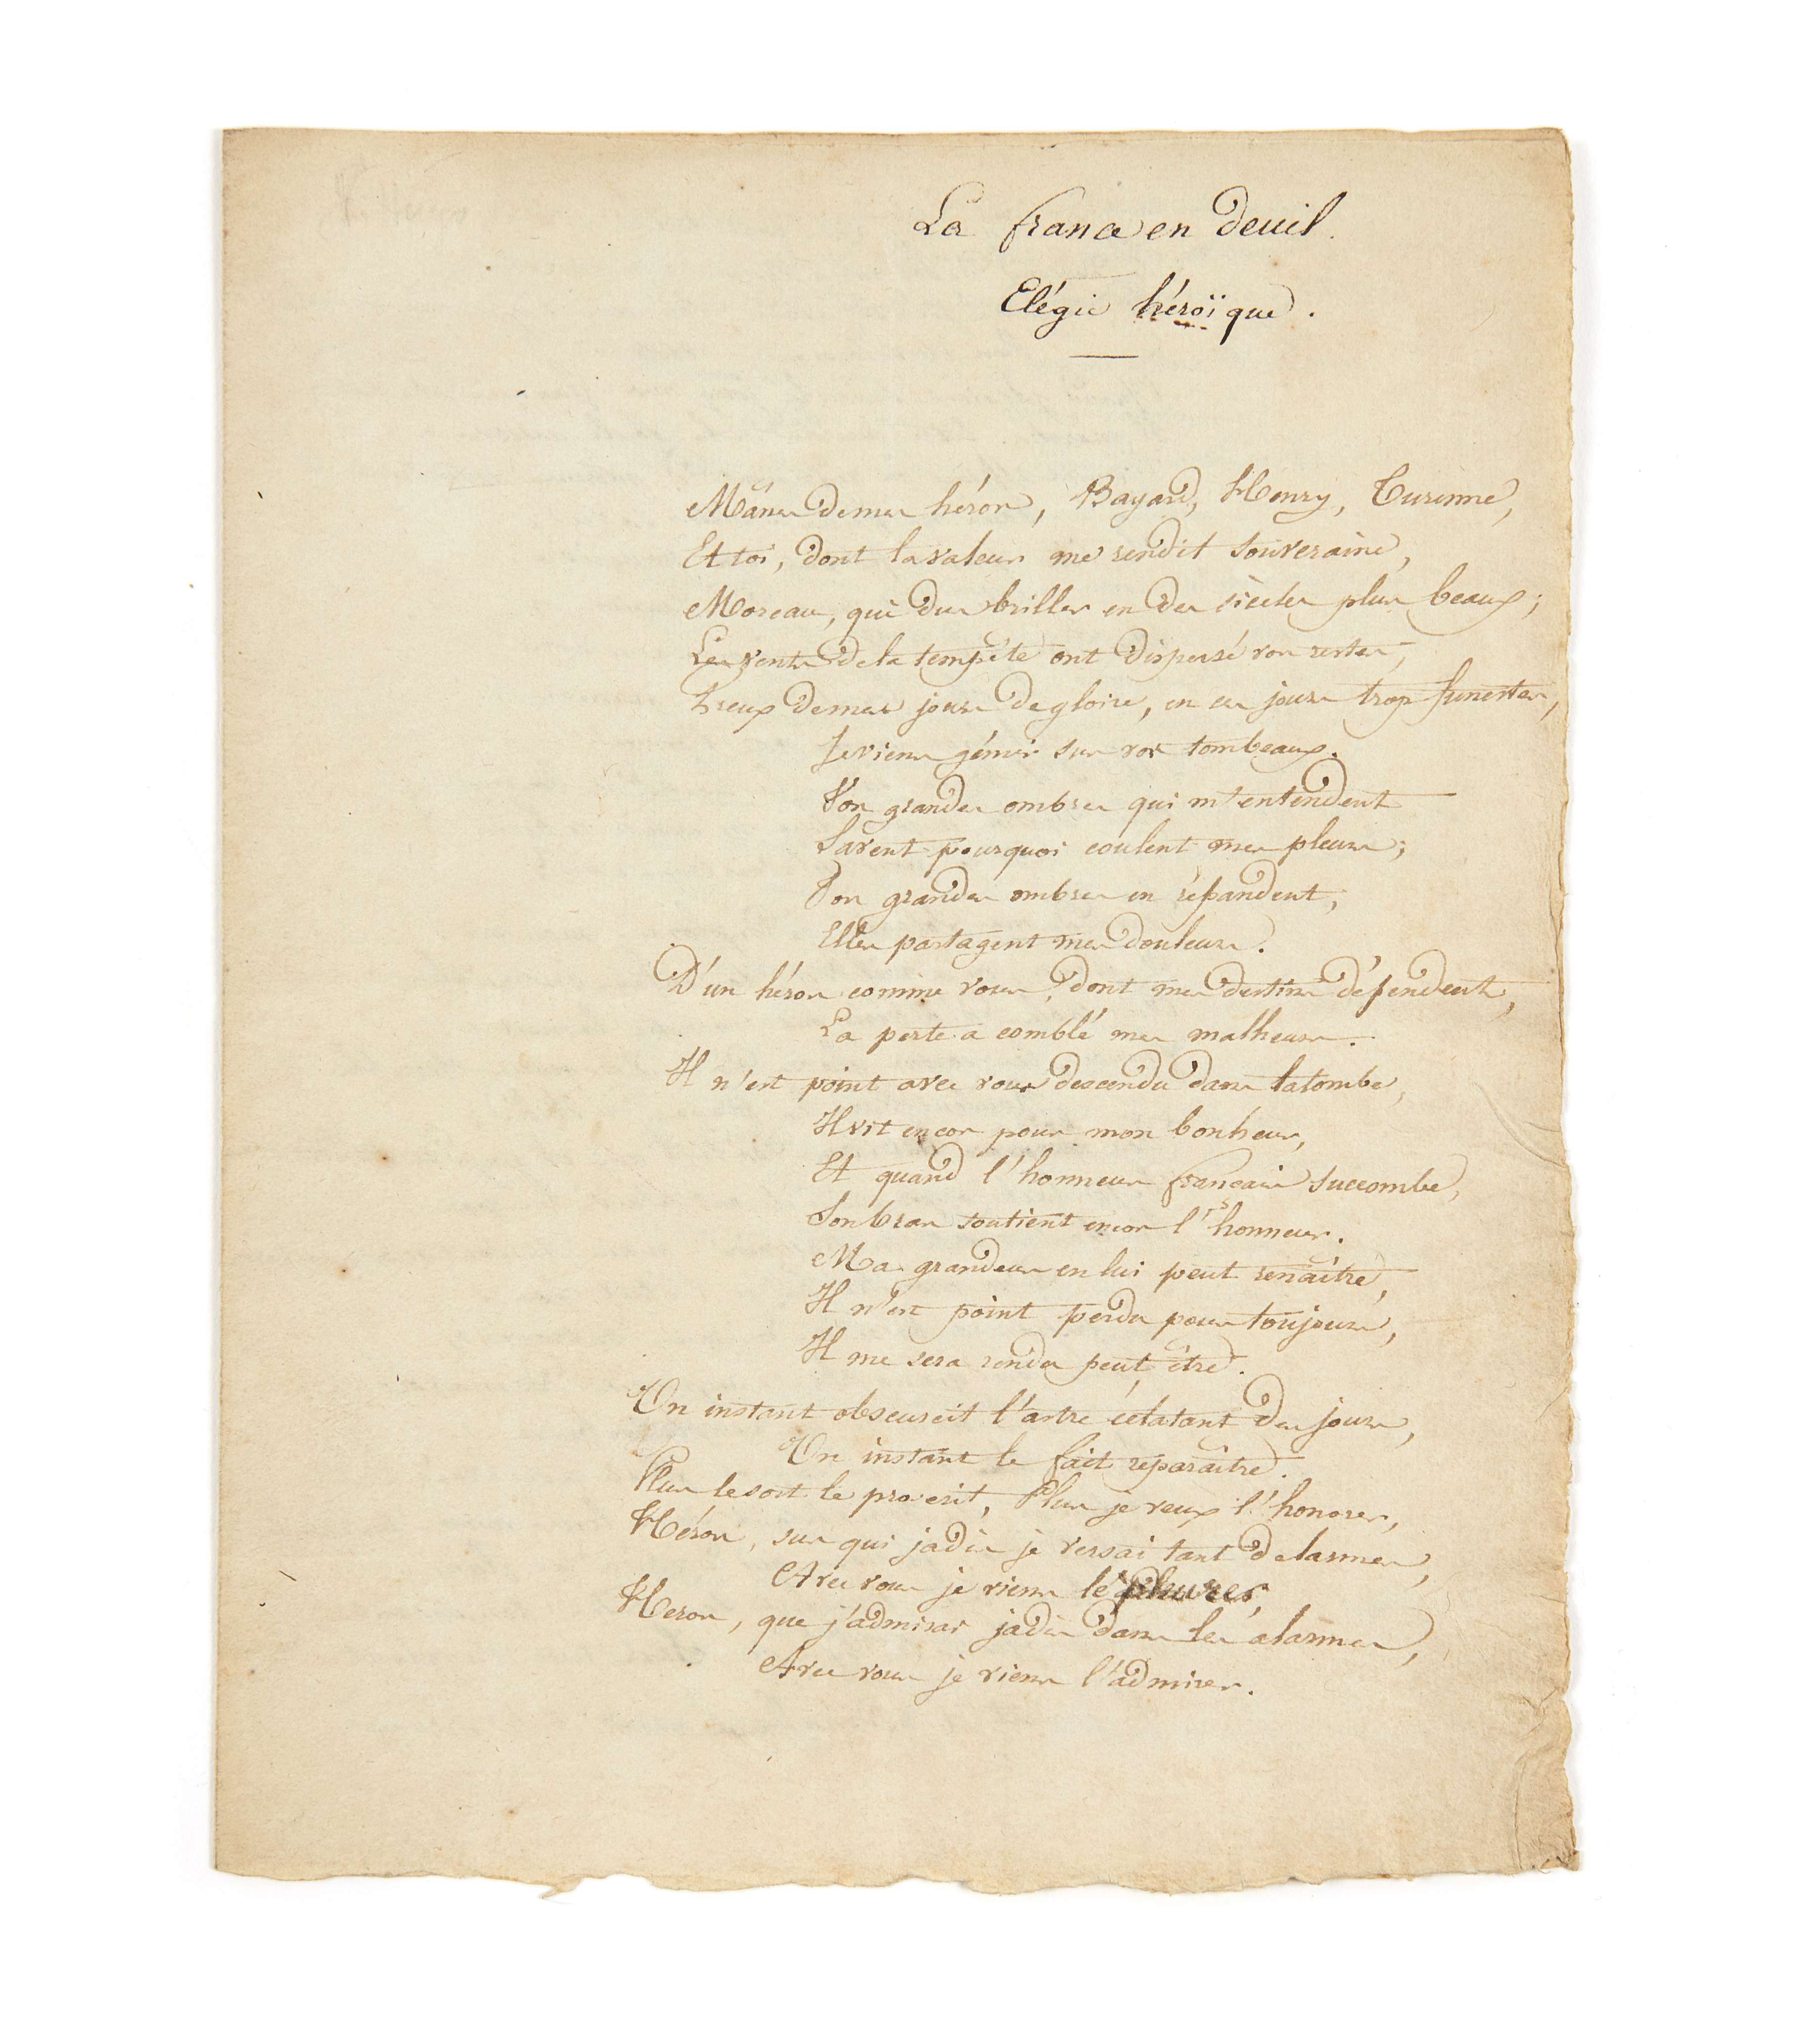 La france en deuil.
Elégie héroïque.
Mânes de mes héros, Bayard, Henry, Turenne,
Et toi, dont la valeur me rendit souveraine,
Moreau, qui dus briller en des siècles plus beaux;
Les vents de la tempête ont dispersé vos restes;
Preux de mes jours de gloire, en ces jours trop funestes,
Je viens gémir sur vos tombeaux.
Vos grandes ombres qui m'entendent
Savent pourquoi coulent mes pleurs;
Vos grandes ombres en répandent,
Elles partagent mes douleurs.
D'un héros comme vous, dont mes destins dépendent,
La perte a comblé mes malheurs.
Il n'est point avec vous descendu dans la tombe,
Il vit encor pour mon bonheur,
Et quand l'honneur français succombe,
Son bras soutient encor l'honneur.
Ma grandeur en lui peut renaître,
Il n'est point perdu pour toujours,
Il me sera rendu peut être.
Un instant obscurcit l'astre éclatant des jours,
Un instant le fait reparaître.
Plus le sort le proscrit, Plus je veux l'honorer,
Héros, sur qui jadis je versai tant de larmes,
Avec vous je viens le pleurer,
Heros, que j'admirai jadis dans les alarmes,
Avec vous je viens l'admirer.